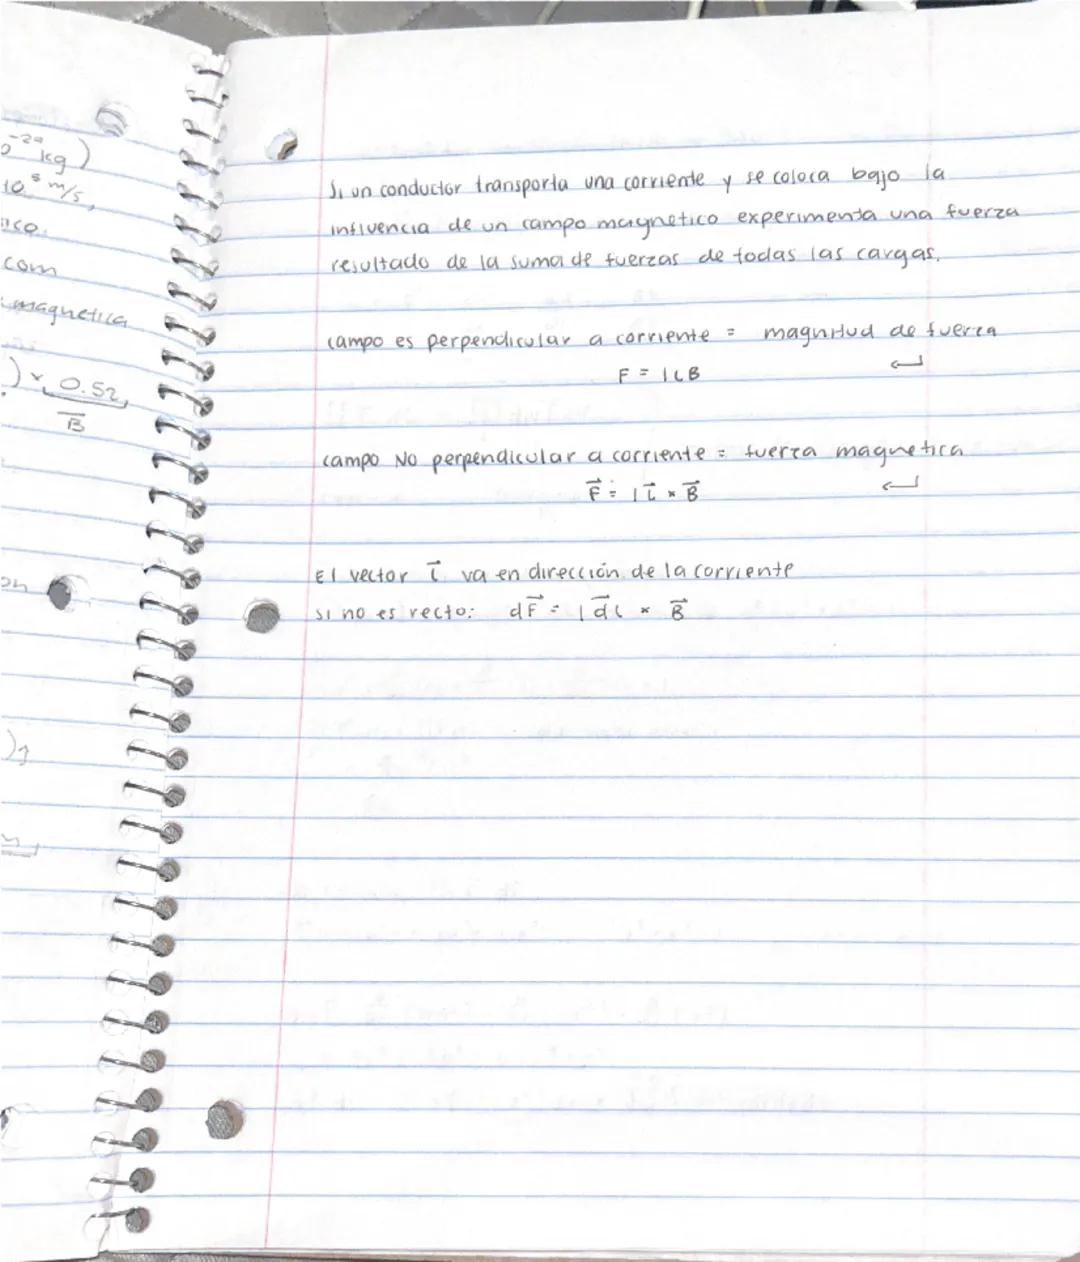 ⁻²⁹ kg)
10⁸ m/s,
com
magnetica
) x 0.52,
B
Si un conductor transporta una corriente y se coloca bajo la
influencia de un campo magnetico experimenta una fuerza
resultado de la suma de fuerzas de todas las cargas.
campo es perpendicular a corriente = magnitud de fuerza
F = ILB
campo NO perpendicular a corriente = fuerza magnetica
F⃗ = I L⃗ × B⃗
El vector L⃗ va en dirección de la corriente
si no es recto: dF⃗ = I d⃗L × B⃗